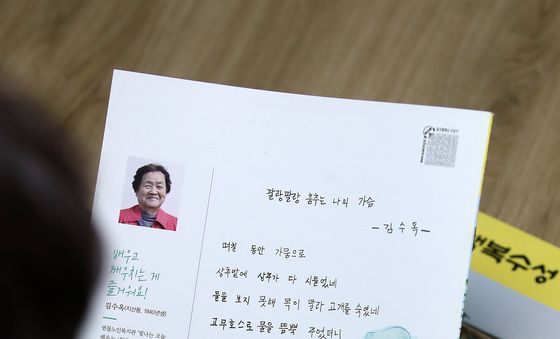 팔랑팔랑 춤추는 나의 가슴
- 김수옥 -
며칠 동안 가뭄으로
상추밭에 상추가 다 시들었네
물을 보지 못해 목이 말라 고개를 숙였네
고무호스로 물을 듬뿍 주었더니
배우고
깨우치는 게
즐거워요!
김수옥(지산동, 1940년생)
범물노인복지관 '빛나는 오늘
수성